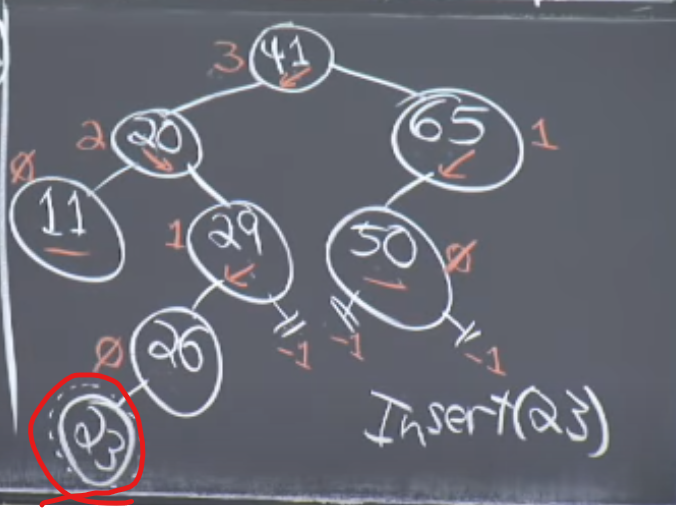 3 41
2 20 65 1
Ø 11 1 29 50 Ø
Ø 26 -1 -1 -1
23 Insert(23)